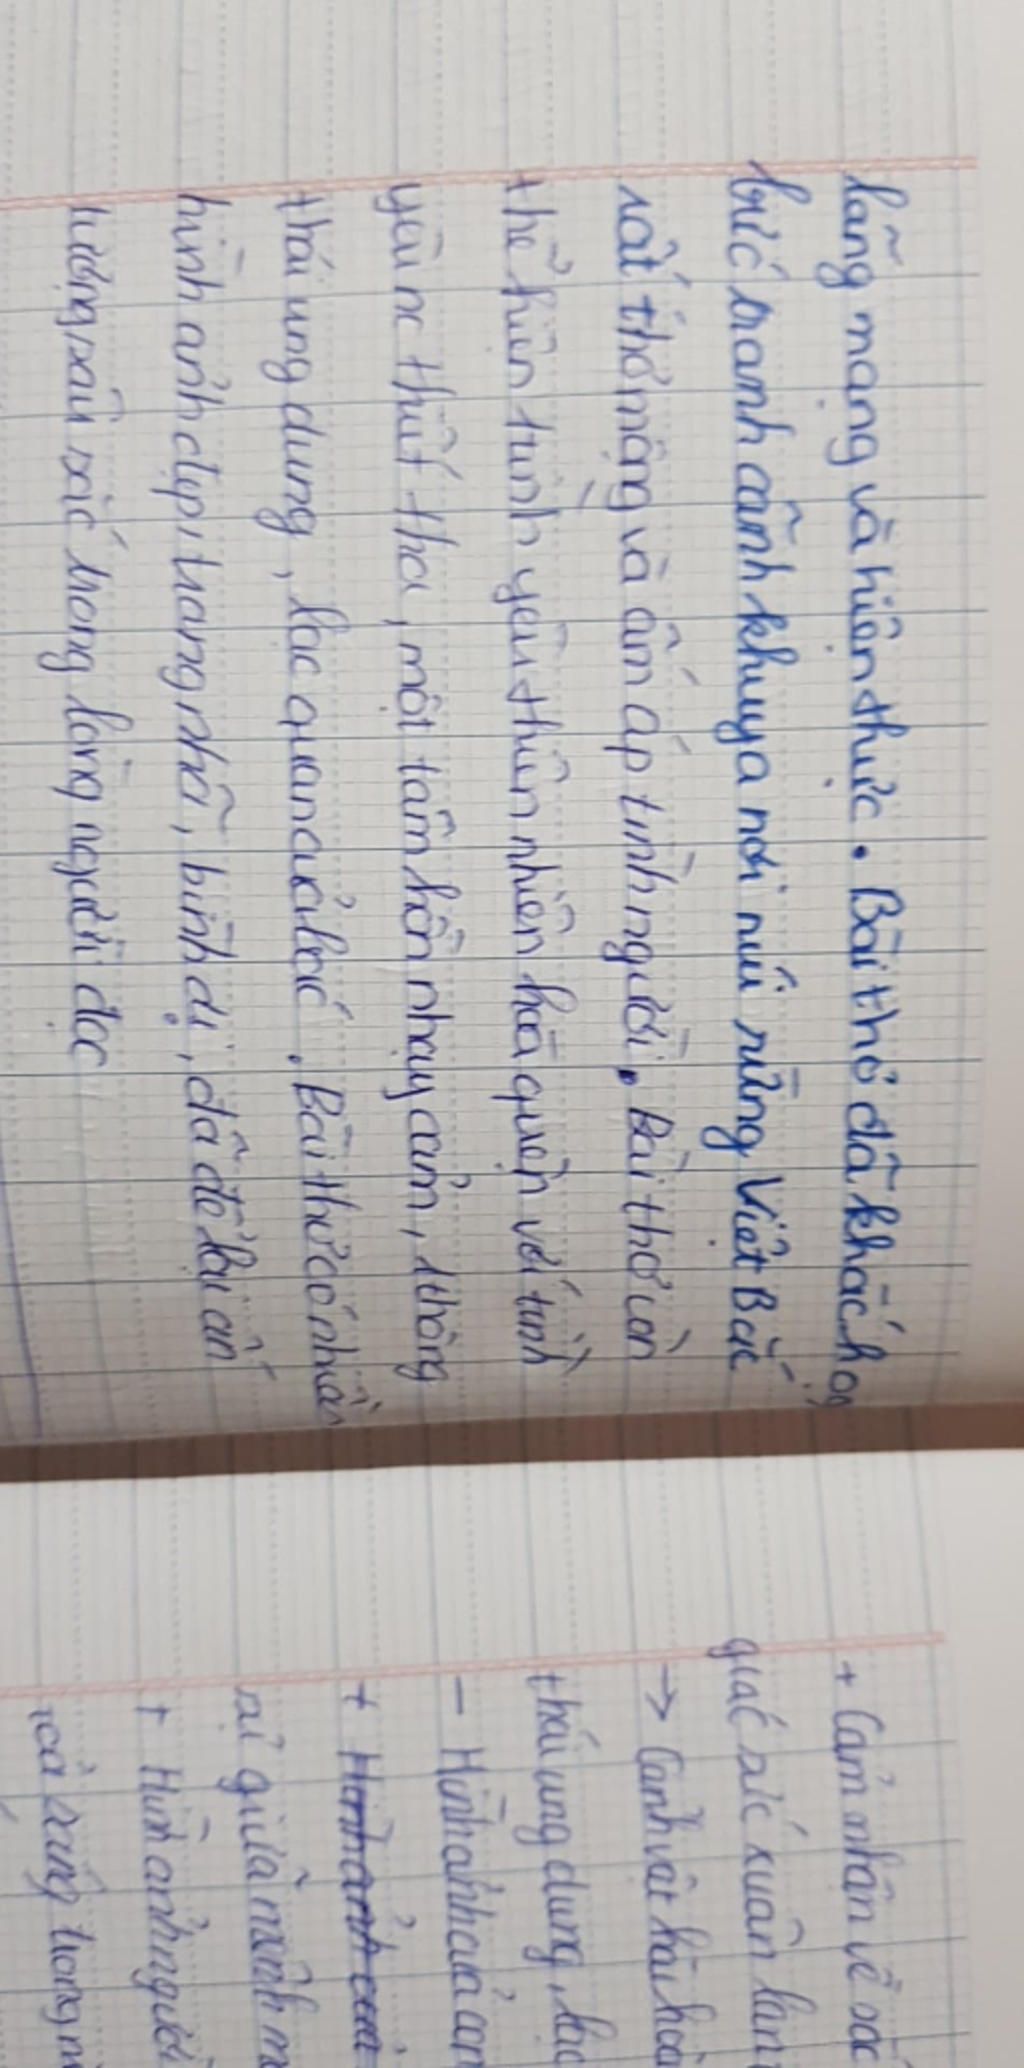 lãng mạng và hiện thực. Bài thơ đã khắc họa
bức tranh cảnh khuya nơi núi rừng Việt Bắc
rất thơ mộng và ấm áp tình người. Bài thơ còn
thể hiện tình yêu thiên nhiên hoà quyện với tình
yêu nc thiết tha, một tâm hồn nhạy cảm, 1 thông
thái ung dung, lạc quan của bác. Bài thơ có nhiều
hình ảnh đẹp, trang nhã, bình dị, đã để lại ấn
tượng sâu sắc trong lòng người đọc
+ Cảm nhận về sắc
giác sức xuân lan
→ Cảnh vật hài hoà
thái ung dung, lạc
- Hình ảnh của con
+ Hình ảnh con
rỉ giữa mênh m
+ Hình ảnh người
toả sáng trong m